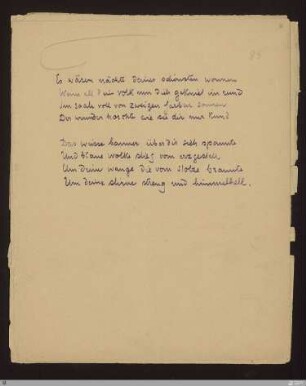 85
Es wären nächte deiner schönsten wonnen
Wenn all dein volk um dich gekniet im rund
Im saale voll von zweigen farben sonnen
Der wunder horcht wie sie dir nur kund
Das weisse banner über dir sich spannte
Und blaue wolke stieg vom erzgestell
Um deine wange die vom stolze brannte
Um deine stirne streng und himmelhell.